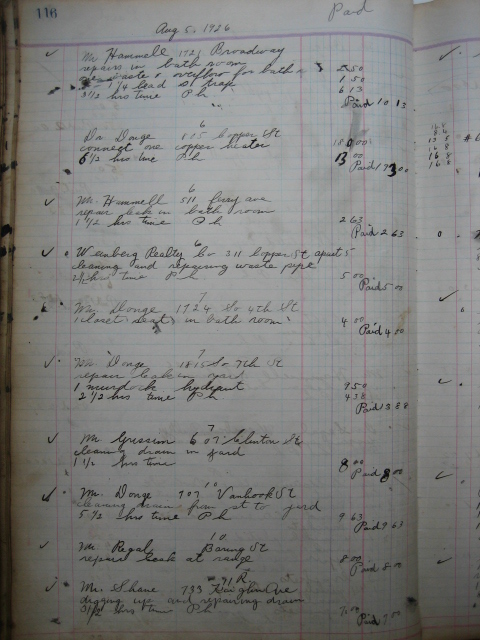 116
Paid
Aug 5, 1926
Mr Hammell 1721 Broadway
repairs in bath room 2 50
waste & overflow for bath 1 50
1 1/4 lead S trap 6 13
3 1/2 hrs time P h Paid 10 13
6
Dr. Donge 815 Copper St
connect one copper heater 180 00
6 1/2 hrs time P h 13 00
Paid 193 00
6
Mr. Hammell 511 ave
repair leak in bath room
1 1/2 hrs time P h 2 63
Paid 2 63
6
Weinberg Realty Co 311 Cooper St apart 5
cleaning and repairing waste pipe
2 1/2 hrs time P h 5 00
Paid 5 00
7
Mr. Donge 1724 So 4th St
closet seat in bath room 4 00
Paid 4 00
7
Mr Donge 1815 So 7th St
repair leak in yard
1 murdock hydrant 9 50
2 1/2 hs time P h 4 38
Paid 13 88
7
Mr 607 Clinton St
cleaning drain in yard
1 1/2 hrs time 8 00
Paid 8 00
10
Mr. Donge 707 Vanhook St
cleaning drain from st to yard
5 1/2 hrs time P h 9 63
Paid 9 63
10
Mr. Regal Baring St
repair leak at range 8 00
Paid 8 00
11
Mrs Shane 733 Ave
digging up and repairing drain
3 1/2 hrs time P h 7 00
Paid 7 00